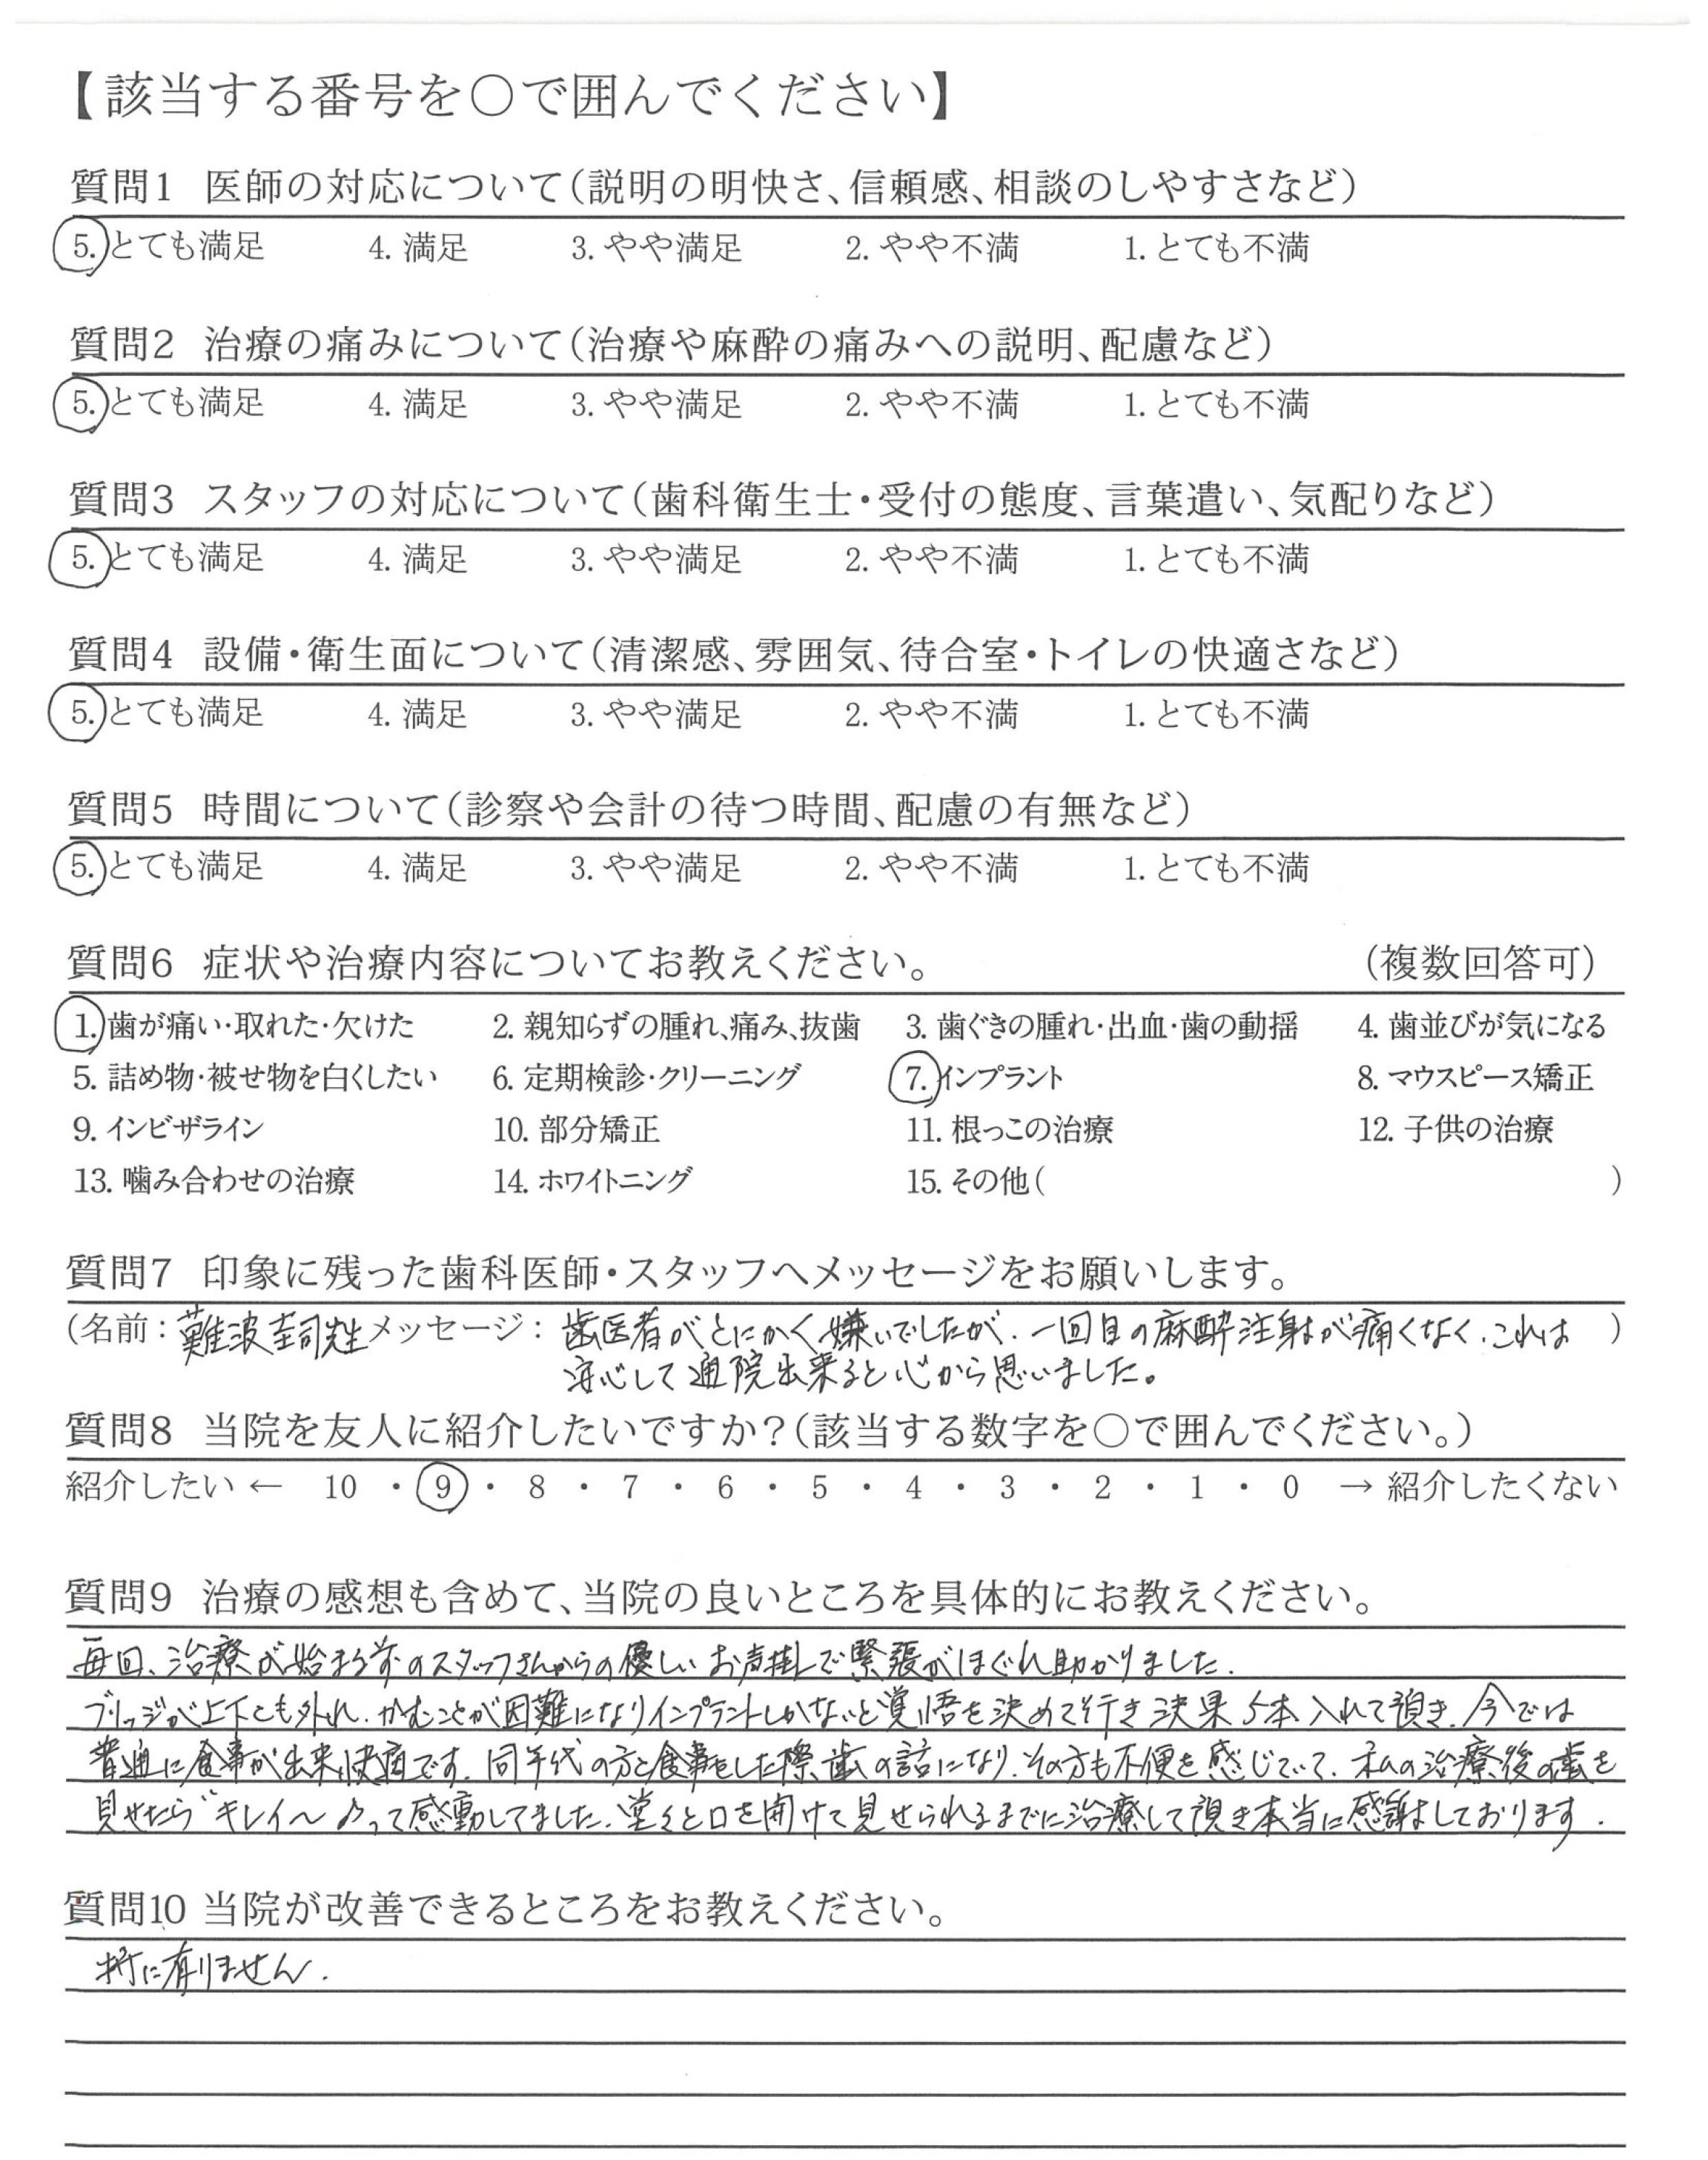 【該当する番号を〇で囲んでください】
質問1 医師の対応について（説明の明快さ、信頼感、相談のしやすさなど）
5. とても満足 4. 満足 3. やや満足 2. やや不満 1. とても不満
質問2 治療の痛みについて（治療や麻酔の痛みへの説明、配慮など）
5. とても満足 4. 満足 3. やや満足 2. やや不満 1. とても不満
質問3 スタッフの対応について（歯科衛生士・受付の態度、言葉遣い、気配りなど）
5. とても満足 4. 満足 3. やや満足 2. やや不満 1. とても不満
質問4 設備・衛生面について（清潔感、雰囲気、待合室・トイレの快適さなど）
5. とても満足 4. 満足 3. やや満足 2. やや不満 1. とても不満
質問5 時間について（診察や会計の待つ時間、配慮の有無など）
5. とても満足 4. 満足 3. やや満足 2. やや不満 1. とても不満
質問6 症状や治療内容についてお教えください。 （複数回答可）
1. 歯が痛い・取れた・欠けた 2. 親知らずの腫れ、痛み、抜歯 3. 歯ぐきの腫れ・出血・歯の動揺 4. 歯並びが気になる
5. 詰め物・被せ物を白くしたい 6. 定期検診・クリーニング 7. インプラント 8. マウスピース矯正
9. インビザライン 10. 部分矯正 11. 根っこの治療 12. 子供の治療
13. 噛み合わせの治療 14. ホワイトニング 15. その他（ ）
質問7 印象に残った歯科医師・スタッフへメッセージをお願いします。
（名前：難波圭司先生 メッセージ：歯医者がとにかく嫌いでしたが、一回目の麻酔注射が痛くなく、これは ）
安心して通院出来ると心から思いました。
質問8 当院を友人に紹介したいですか？（該当する数字を〇で囲んでください。）
紹介したい ← 10 ・ 9 ・ 8 ・ 7 ・ 6 ・ 5 ・ 4 ・ 3 ・ 2 ・ 1 ・ 0 → 紹介したくない
質問9 治療の感想も含めて、当院の良いところを具体的にお教えください。
毎回、治療が始まる前のスタッフさんからの優しいお声掛しで緊張がほぐれ助かりました.
ブリッジが上下とも外れ、かむことが困難になりインプラントしかないと覚悟を決めて行き決果5本入れて頂き、今では
普通に食事が出来快適です。同年代の方と食事をした際、歯の話になり、その方も不便を感じていて、私の治療後の歯を
見せたら"キレイ〜♪って感動してました、堂々と口を開けて見せられるまでに治療して頂き本当に感謝しております.
質問10 当院が改善できるところをお教えください。
特に有りません.